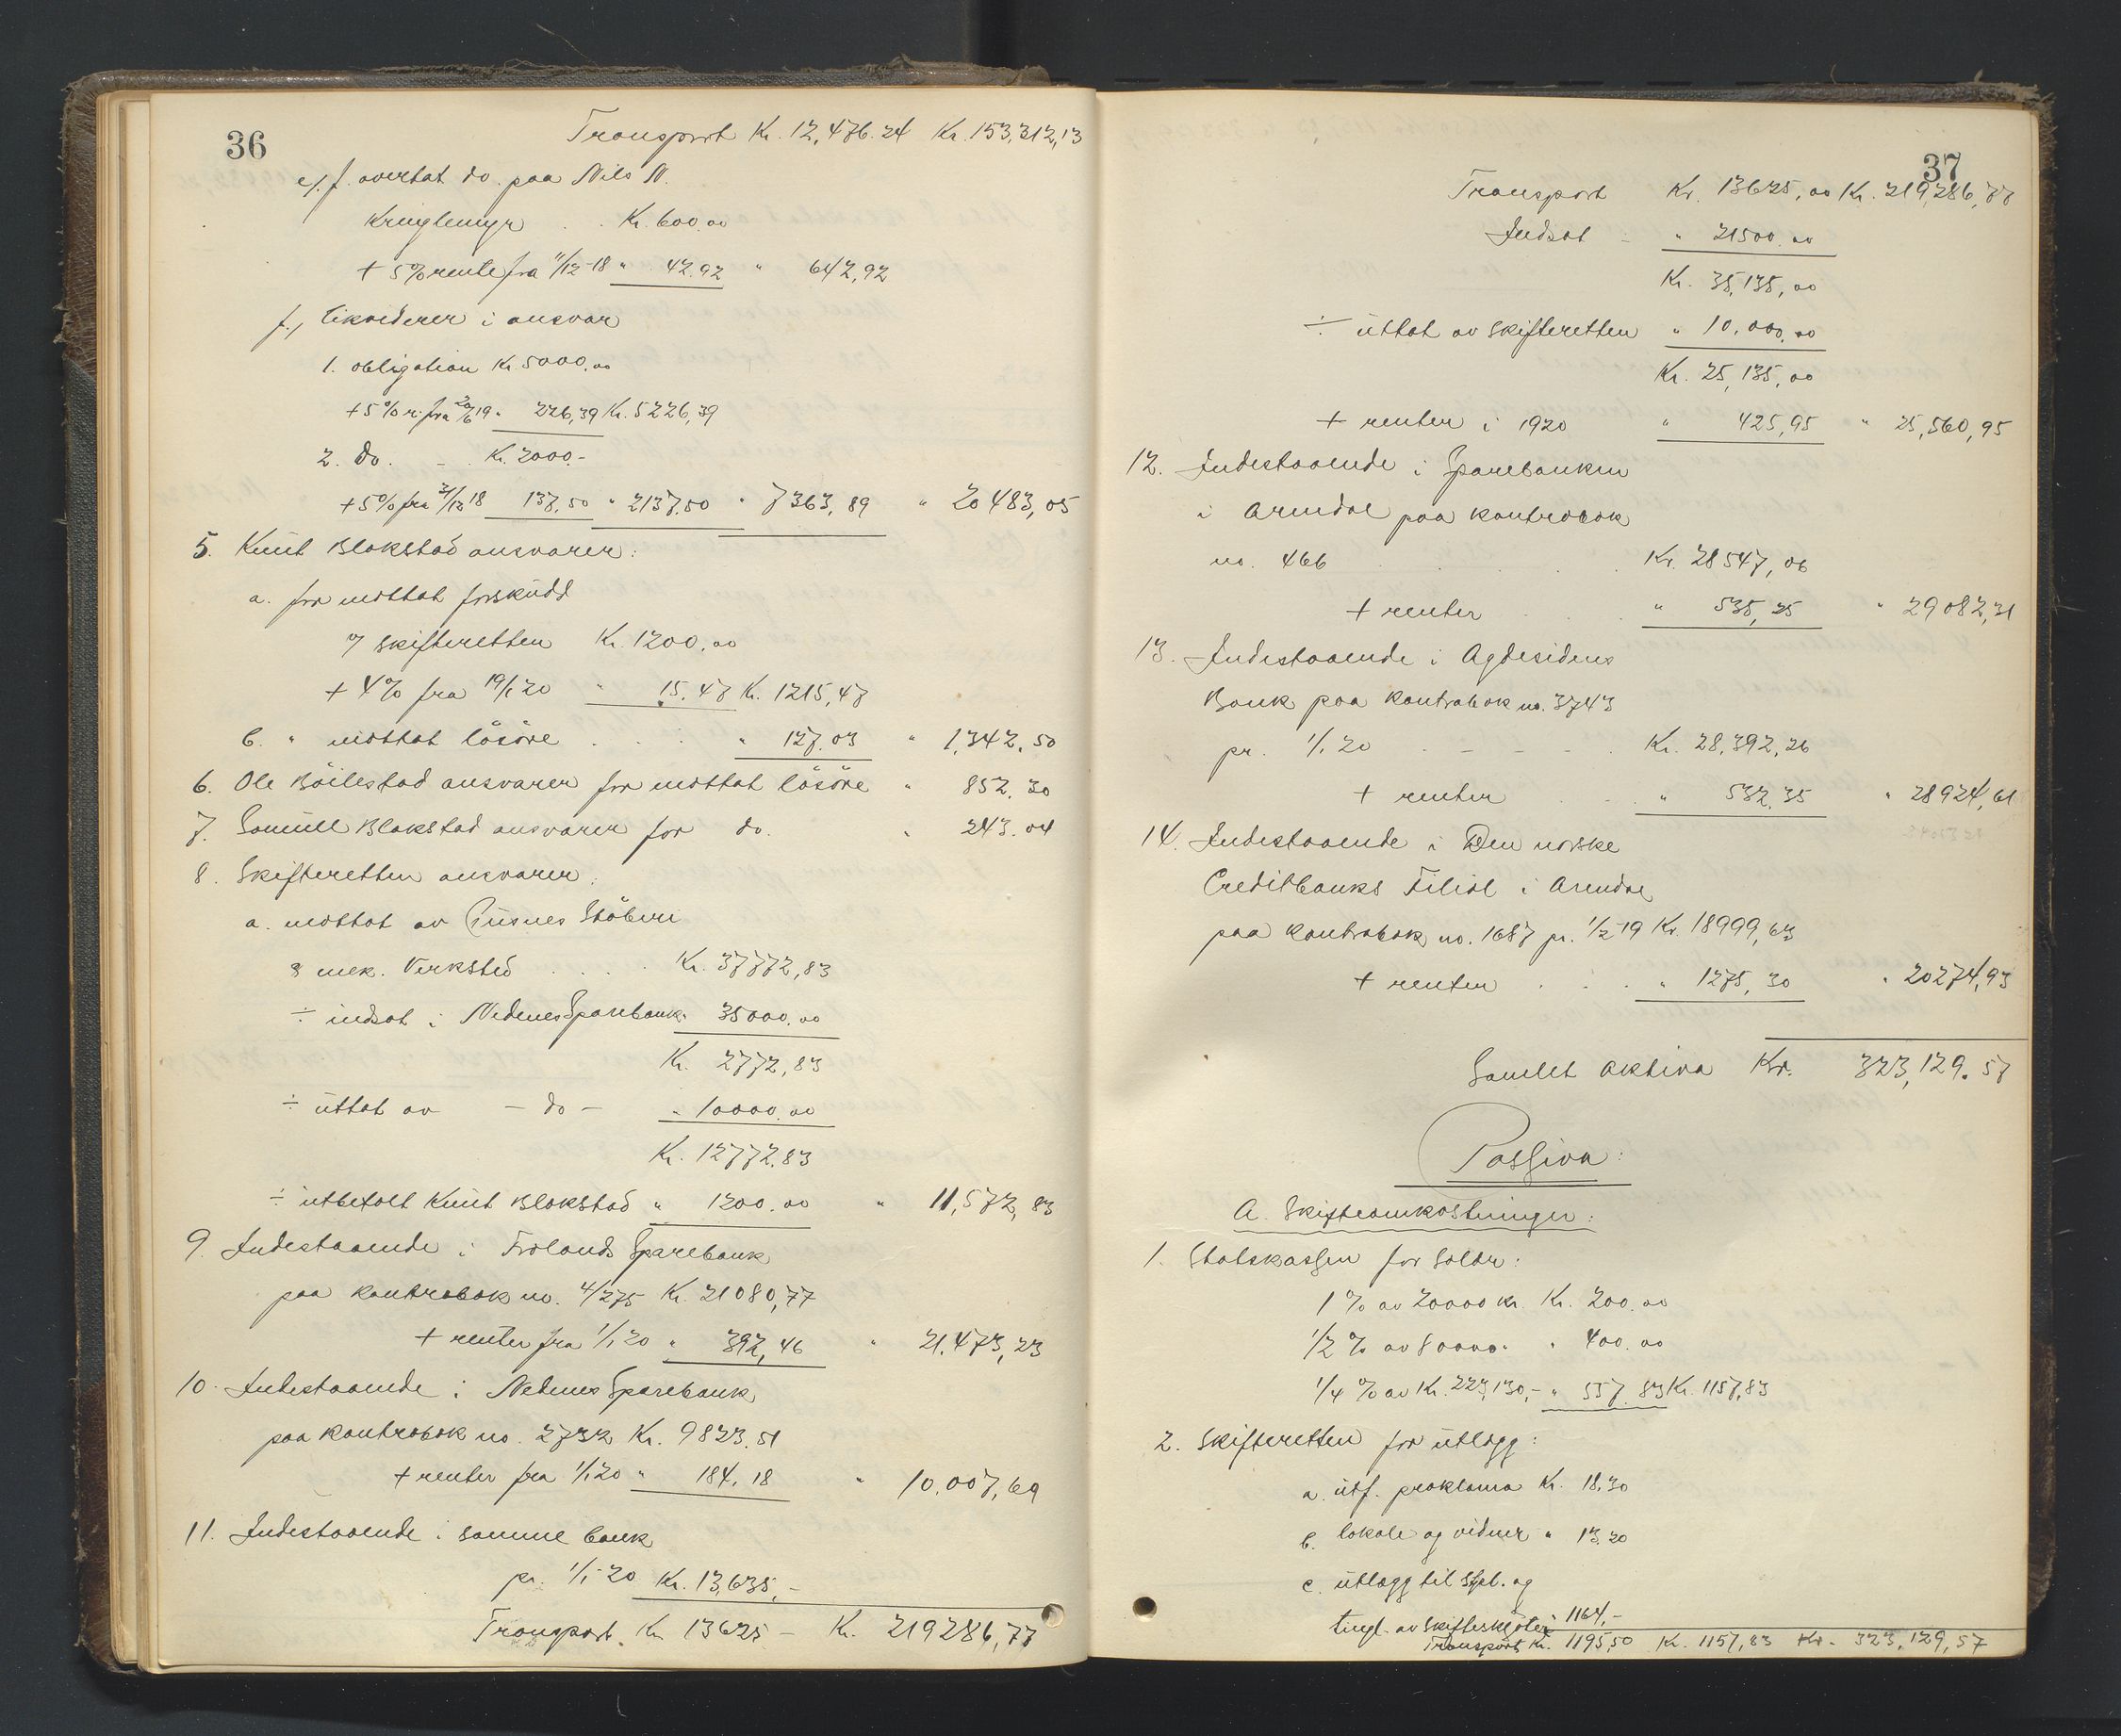 36
Transport Kr. 12,476.24 Kr. 153,312,13
e/. f. overtat do. paa Nils N.
Kringlemyr . . Kr. 600.00
+ 5% rente fra 11/12-18 " 42.92 " 642,92
f., likviderer i ansvar
1. obligation Kr. 5000.00
+ 5% r. fra 20/6 19 " 226,39 Kr. 5226,39
2. do. - Kr. 2000.-
+ 5% fra 31/12 18 137,50 " 2137.50 " 7363,89 " 20483,05
5. Knut Blakstad ansvarer:
a. for mottat forskudd
av skifteretten Kr. 1200.00
+ 4% fra 19/1 20 " 15.47 Kr. 1215,47
b. " mottat lösöre . . . " 127.03 " 1,342.50
6. Ole Böilestad ansvarer for mottat lösöre " 852.30
7. Samuel Blakstad ansvarer for do. " 243.04
8. Skifteretten ansvarer:
a. mottat av Pusnes Stöberi
& mek. Verksted . . . . Kr. 37772,83
÷ indsat i Nedenes Sparebank " 35000.00
Kr. 2772,83
÷ uttat av - do - " 10000.00
Kr. 12772.83
÷ utbetalt Knut Blakstad " 1200.00 " 11,572,83
9. Indestaaende i Frolands Sparebank
paa kontrabok no. 4/275 Kr. 21080,77
+ renter fra 1/1 20 " 392,46 " 21.473,23
10. Indestaaende i Nedenes Sparebank
paa kontrabok no. 2732 Kr. 9823.51
+ renter fra 1/1 20 " 184.18 " 10.007,69
11. Indestaaende i samme bank
pr. 1/1-20 Kr. 13,635,-
Transport. Kr. 13625.- Kr. 219286,77
37
Transport Kr. 13625,00 Kr. 219,286,77
Indsat - " 21500.00
Kr. 35,135,00
÷ uttat av skifteretten " 10.000.00
Kr. 25,135,00
+ renter i 1920 " 425,95 " 25,560,95
12. Indestaaende i Sparebanken
i Arendal paa kontrabok
no. 466 . . . . Kr. 28547,06
+ renter . . . " 535,25 " 29082,31
13. Indestaaende i Agdesidens
Bank paa kontrabok no. 3743
pr. 1/1 20 - - - . Kr. 28,392,26
+ renter . . " 532,35 " 28924,61
14. Indestaaende i Den norske
Creditbanks Filial i Arendal
paa kontrabok no. 1687 pr. 1/2-19 Kr. 18999,63
+ renter . . . " 1275,30 " 20274,93
Samlet aktiva Kr. 323,129.57
Passiva:
A. Skifteomkostninger:
1. Statskassen for Saldr:
1% av 20000 kr. Kr. 200.00
1/2 % av 80000. " 400.00
1/4 % av Kr. 223,130,- " 557.83 Kr. 1157,83
2. Skifteretten for utlægg:
a. utf. proklama Kr. 18,30
b. lokale og vidner " 13.20
c. utlagg til stpl. og
tingl. av skifteskjöter " 1164,-
Transport Kr. 1195,50 Kr. 1157,83 Kr. 323,129,57